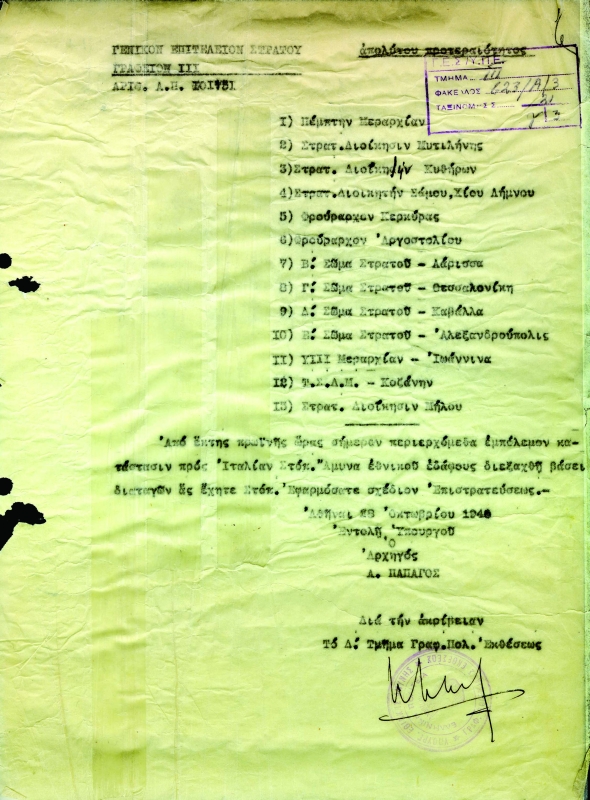 ΓΕΝΙΚΟΝ ΕΠΙΤΕΛΕΙΟΝ ΣΤΡΑΤΟΥ
ἀπολύτου προτεραιότητος
ΓΡΑΦΕΙΟΝ ΙΙΙ
ΑΡΙΘ. Δ.Π.
Γ.Ε.Σ/Π.Π.Ε.
ΤΜΗΜΑ... ΙΙΙ
ΦΑΚΕΛΛΟΣ 623/Α/3
ΤΑΞΙΝΟΜΗΣΙΣ
1) Πέμπτην Μεραρχίαν
2) Στρατ.Διοίκησιν Μυτιλήνης
3)Στρατ. Διοίκησιν Κυθήρων
4)Στρατ.Διοικητήν Σάμου,Χίου Λήμνου
5) Φρούραρχον Κερκύρας
6)Φρούραρχον Ἀργοστολίου
7) Β.' Σῶμα Στρατοῦ - Λάρισσα
8) Γ.' Σῶμα Στρατοῦ - Θεσσαλονίκη
9) Δ.' Σῶμα Στρατοῦ - Καβάλλα
10) Σῶμα Στρατοῦ - Ἀλεξανδρούπολις
11) ΥΙΙΙ Μεραρχίαν - Ἰωάννινα
12) Τ.Σ.Δ.Μ. - Κοζάνην
13) Στρατ. Διοίκησιν Μήλου
Ἀπό ἕκτης πρωϊνῆς ὥρας σήμερον περιερχόμεδα ἐμπόλεμον κα-
τάστασιν πρός Ἰταλίαν Στόπ. Ἄμυνα ἐθνικοῦ ἐδάφους διεξαχθῆ βάσει
διαταγῶν ἅς ἔχητε Στόπ. Ἐφαρμόσατε σχέδιον Ἐπιστρατεύσεως.-
Ἀθῆναι 28 Ὀκτωβρίου 1940
Ἐντολῇ Ὑπουργοῦ
Ὁ
Ἀρχηγός
Α. ΠΑΠΑΓΟΣ
Διά τήν ἀκρίβειαν
Τό Δ.' Τμῆμα Γραφ.Πολ. Ἐκθέσεως